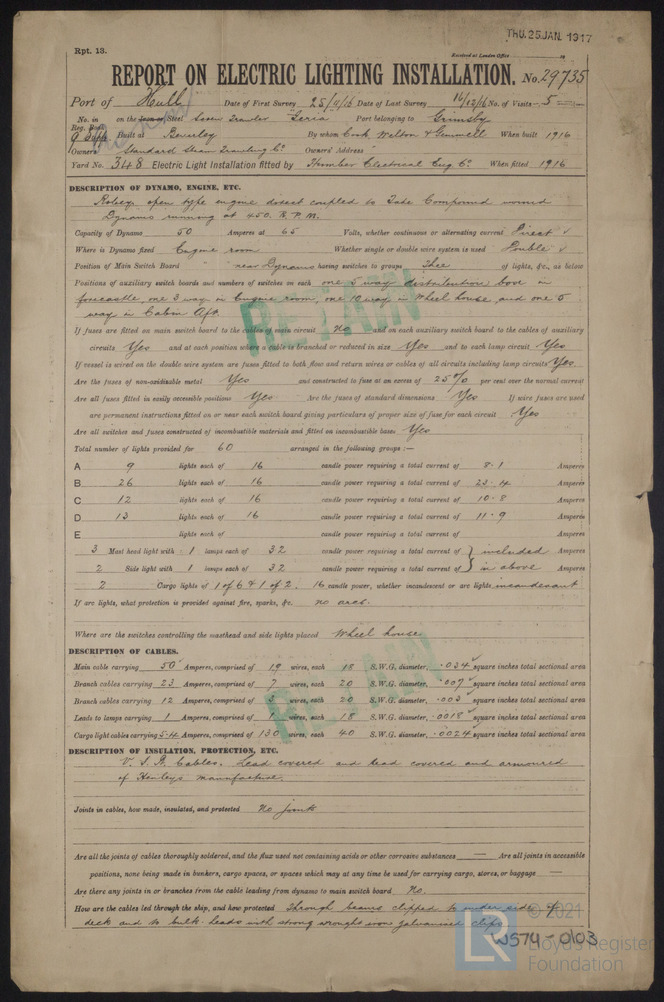 THU. 25 JAN. 1917
Rpt. 13.
Received at London Office
REPORT ON ELECTRIC LIGHTING INSTALLATION. No. 29735
Port of Hull Date of First Survey 25/11/16 Date of Last Survey 16/12/16 No. of Visits 5
No. in on the Iron or Steel Screw Trawler Port belonging to Grimsby
Reg. Book
9 Supp Built at Beverley By whom Cook Welton & Gemmell When built 1916
Owners Standard Steam Trawling Co Owners' Address
Yard No. 348 Electric Light Installation fitted by Humber Electrical Eng Co. When fitted 1916
DESCRIPTION OF DYNAMO, ENGINE, ETC.
Robey open type engine direct coupled to Compound wound
Dynamo running at 450 R.P.M.
Capacity of Dynamo 50 Amperes at 65 Volts, whether continuous or alternating current Direct
Where is Dynamo fixed Engine room Whether single or double wire system is used Double
Position of Main Switch Board near Dynamo having switches to groups Thee of lights, &c., as below
Positions of auxiliary switch boards and numbers of switches on each one 5 way distribution box in
forecastle, one 3 way in Engine room, one 10 way in Wheel house, and one 5
way in Cabin Aft.
RETAIN
If fuses are fitted on main switch board to the cables of main circuit No and on each auxiliary switch board to the cables of auxiliary
circuits Yes and at each position where a cable is branched or reduced in size Yes and to each lamp circuit Yes
If vessel is wired on the double wire system are fuses fitted to both flow and return wires or cables of all circuits including lamp circuits Yes
Are the fuses of non-oxidizable metal Yes and constructed to fuse at an excess of 25% per cent over the normal current
Are all fuses fitted in easily accessible positions Yes Are the fuses of standard dimensions Yes If wire fuses are used
are permanent instructions fitted on or near each switch board giving particulars of proper size of fuse for each circuit Yes
Are all switches and fuses constructed of incombustible materials and fitted on incombustible bases Yes
Total number of lights provided for 60 arranged in the following groups :—
A 9 lights each of 16 candle power requiring a total current of 8.1 Amperes
B 26 lights each of 16 candle power requiring a total current of 23.4 Amperes
C 12 lights each of 16 candle power requiring a total current of 10.8 Amperes
D 13 lights each of 16 candle power requiring a total current of 11.9 Amperes
E lights each of candle power requiring a total current of Amperes
3 Mast head light with 1 lamps each of 32 candle power requiring a total current of included Amperes
2 Side light with 1 lamps each of 32 candle power requiring a total current of in above Amperes
2 Cargo lights of 1 of 6 & 1 of 2. 16 candle power, whether incandescent or arc lights incandescent
If arc lights, what protection is provided against fire, sparks, &c. no arcs.
Where are the switches controlling the masthead and side lights placed Wheel house
DESCRIPTION OF CABLES.
Main cable carrying 50 Amperes, comprised of 19 wires, each 18 S.W.G. diameter, .034 square inches total sectional area
Branch cables carrying 23 Amperes, comprised of 7 wires, each 20 S.W.G. diameter, .007 square inches total sectional area
Branch cables carrying 12 Amperes, comprised of 3 wires, each 20 S.W.G. diameter, .003 square inches total sectional area
Leads to lamps carrying 1 Amperes, comprised of 1 wires, each 18 S.W.G. diameter, .0018 square inches total sectional area
Cargo light cables carrying 5.4 Amperes, comprised of 130 wires, each 40 S.W.G. diameter, .0024 square inches total sectional area
RETAIN
DESCRIPTION OF INSULATION, PROTECTION, ETC.
V.I.R. Cables. Lead covered and lead covered and armoured
of Henley's manufacture.
Joints in cables, how made, insulated, and protected no joints
Are all the joints of cables thoroughly soldered, and the flux used not containing acids or other corrosive substances — Are all joints in accessible
positions, none being made in bunkers, cargo spaces, or spaces which may at any time be used for carrying cargo, stores, or baggage —
Are there any joints in or branches from the cable leading from dynamo to main switch board No.
How are the cables led through the ship, and how protected Through beams clipped to under side of
deck and to bulk-heads with strong wrought iron galvanised clips
© 2021
LR
W574-0103
Lloyd's Register
Foundation